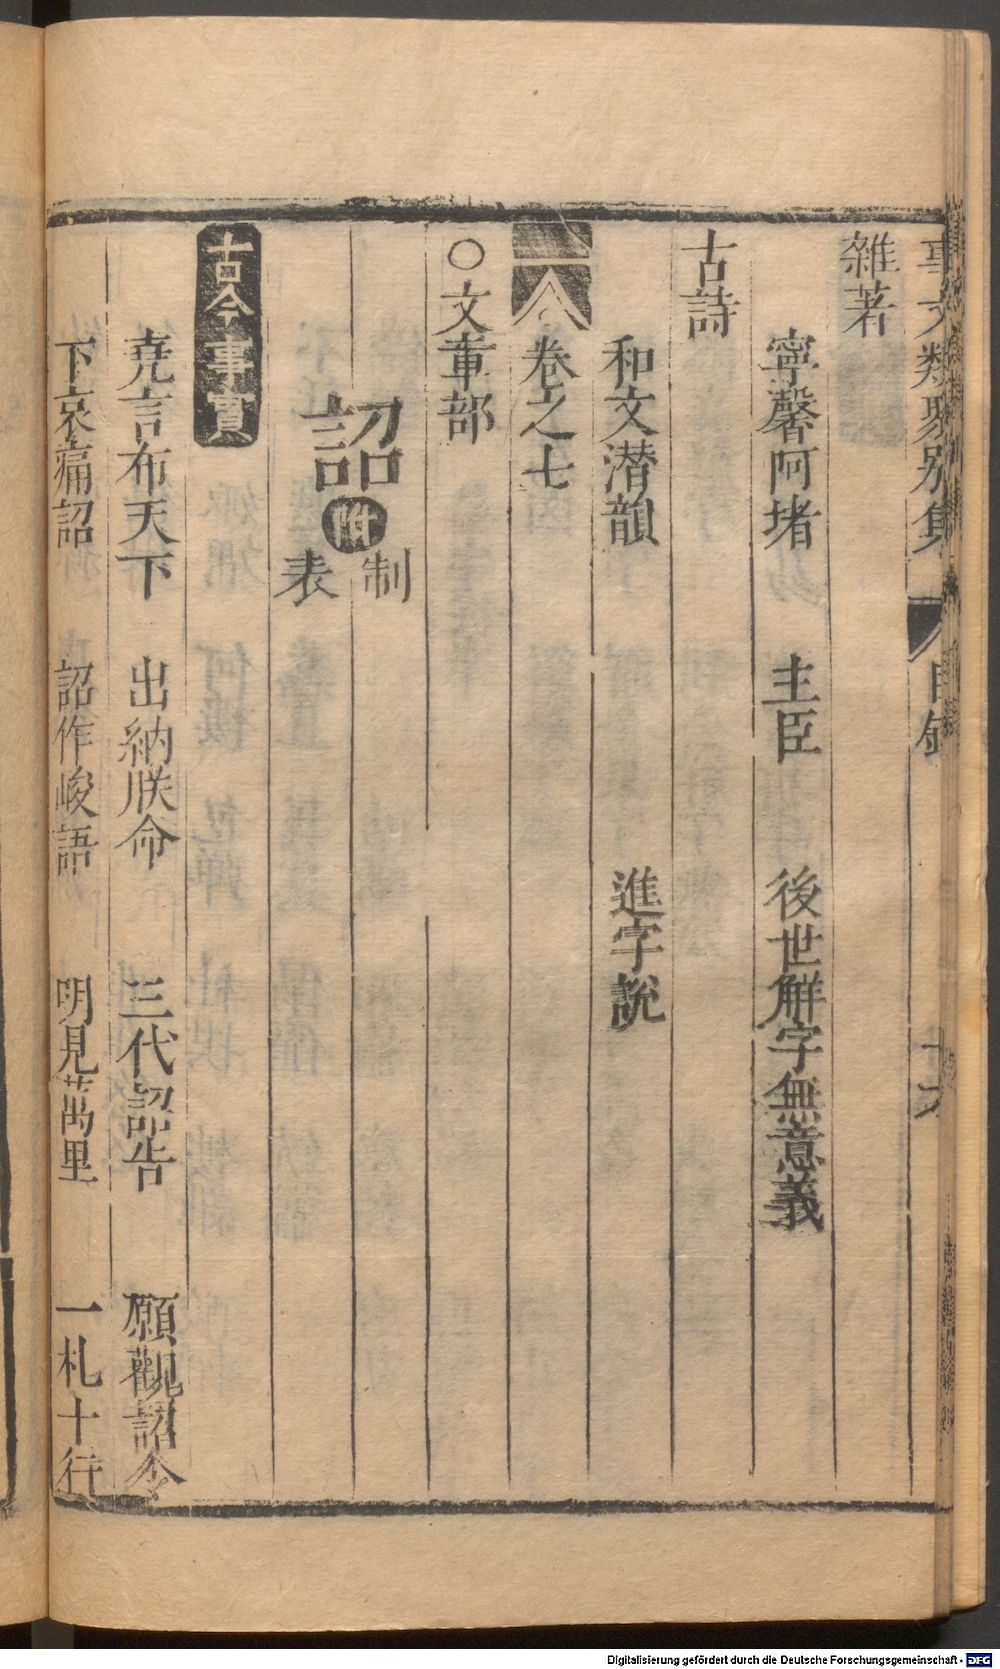 事文類聚別集 目錄 十六
雜著
寧馨阿堵 主臣 後世解字無意義
古詩
和文潛韻 進字說
卷之七
○文章部
詔 附 制 表
古今事實
堯言布天下 出納朕命 三代詔告 願觀詔令
下哀痛詔 詔作峻語 明見萬里 一札十行
Digitalisierung gefördert durch die Deutsche Forschungsgemeinschaft - DFG